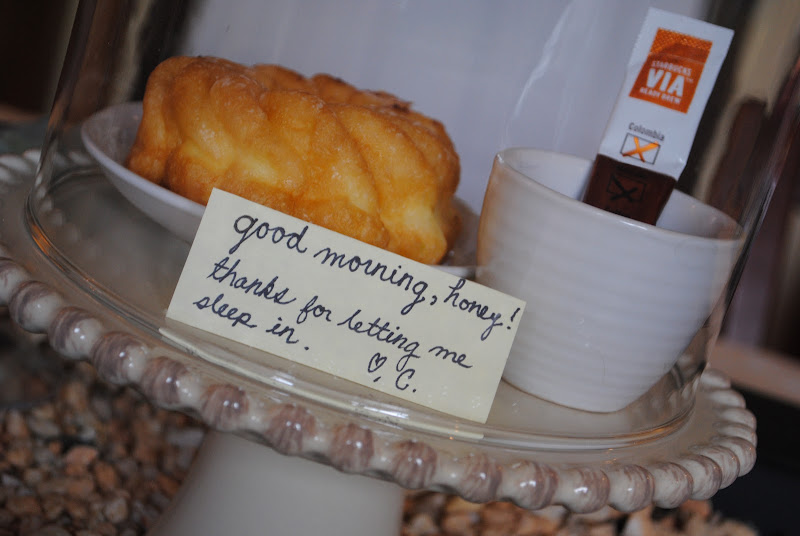 STARBUCKS
VIA
READY BREW
Colombia
good morning, honey!
thanks for letting me
sleep in.
♡, C.